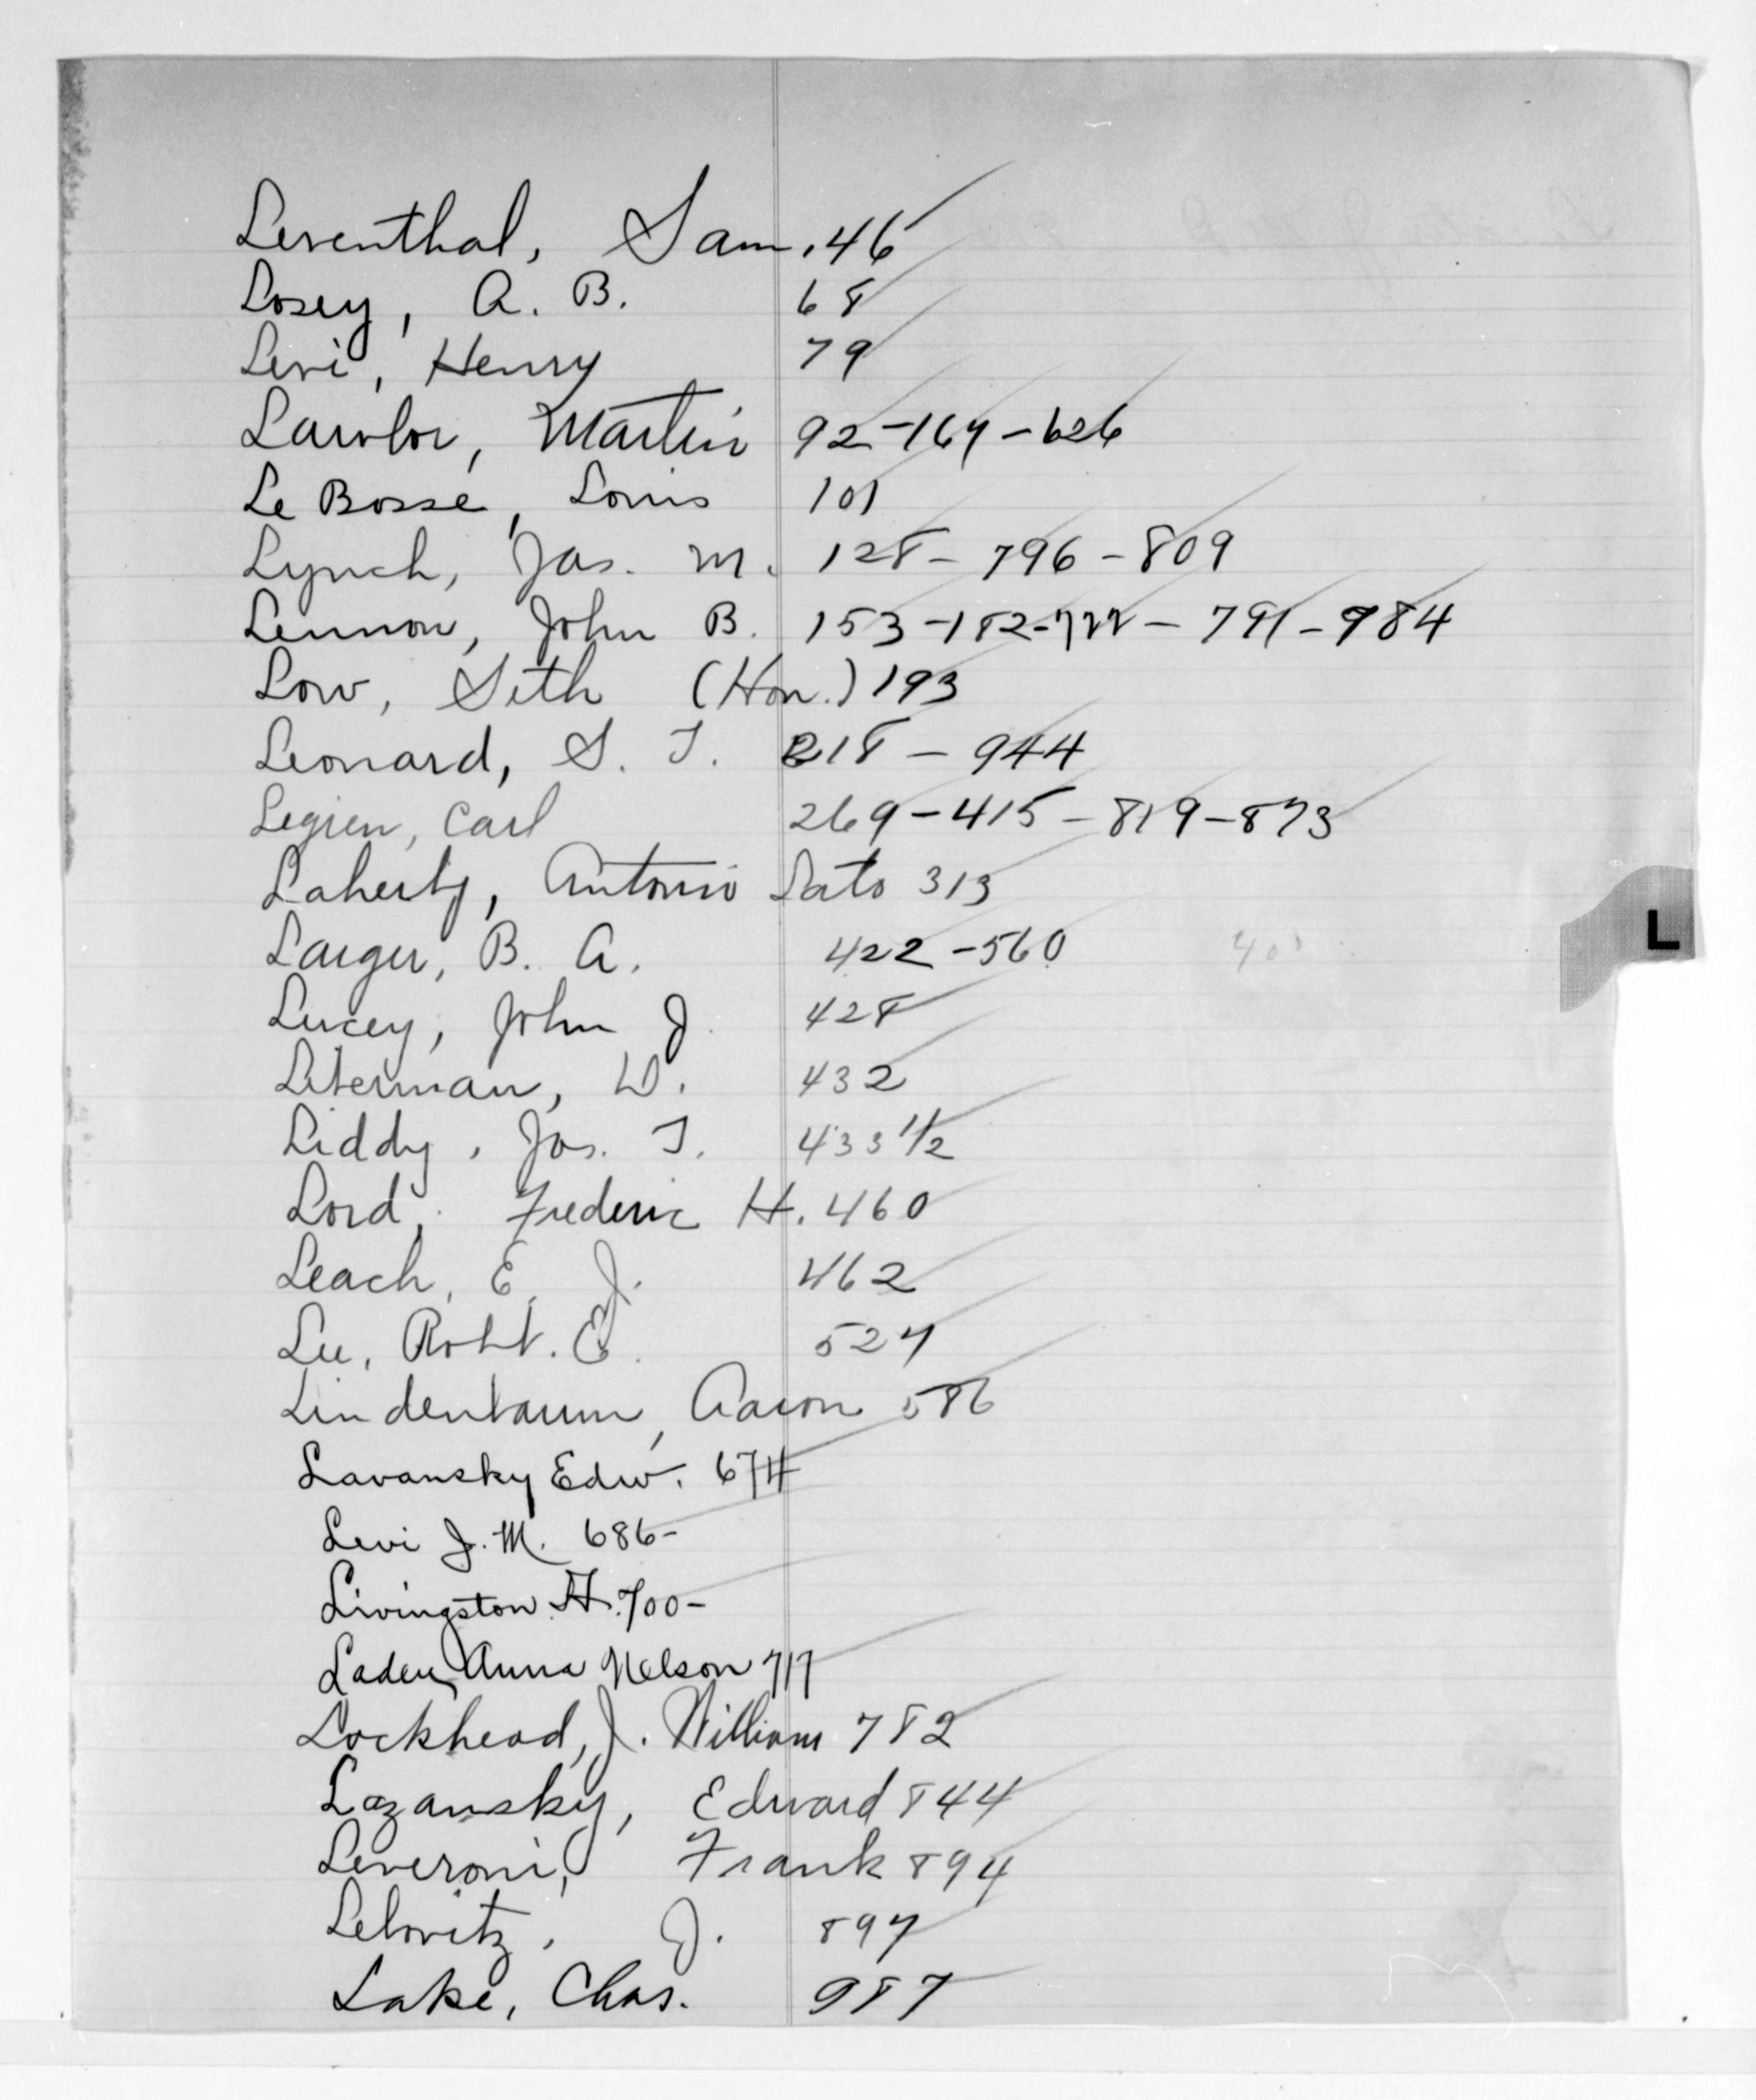 Leventhal, Sam. 46
Losey, A. B. 68
Levi, Henry 79
Lawlor, Martin 92-167-626
Le Bosse, Louis 101
Lynch, Jas. M. 128-796-809
Lennon, John B. 153-182-722-791-984
Low, Seth (Hon.) 193
Leonard, S. T. 218-944
Legien, Carl 269-415-819-873
Laherty, Antonio Sato 313
Larger, B. A. 422-560
Lucey, John J. 428
Literman, W. 432
Liddy, Jos. T. 433 1/2
Lord, Frederic H. 460
Leach, E. J. 462
Lee, Robt. E. 527
Lindenbaum, Aaron 586
Lavansky Edw. 674
Levi J. M. 686-
Livingston H. 700-
Laden, Anna Nelson 717
Lockhead, J. William 782
Lazansky, Edward 844
Leveroni, Frank 894
Lebovitz, J. 897
Lake, Chas. 987
L